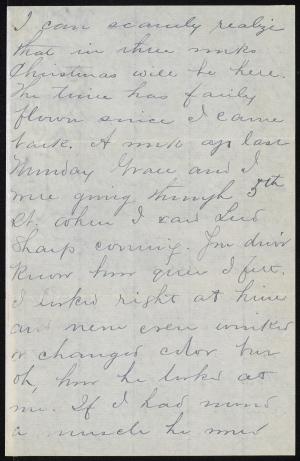 I can scarcely realize
that in three weeks
Christmas will be here.
The time has fairly
flown since I came
back. A week ago last
Sunday Grace and I
were going through 5th
St. when I saw
Sharp coming. You don't
know how queer I felt.
I looked right at him
and never even winked
or changed color but
oh, how he looked at
me. If I had moved
a muscle he would